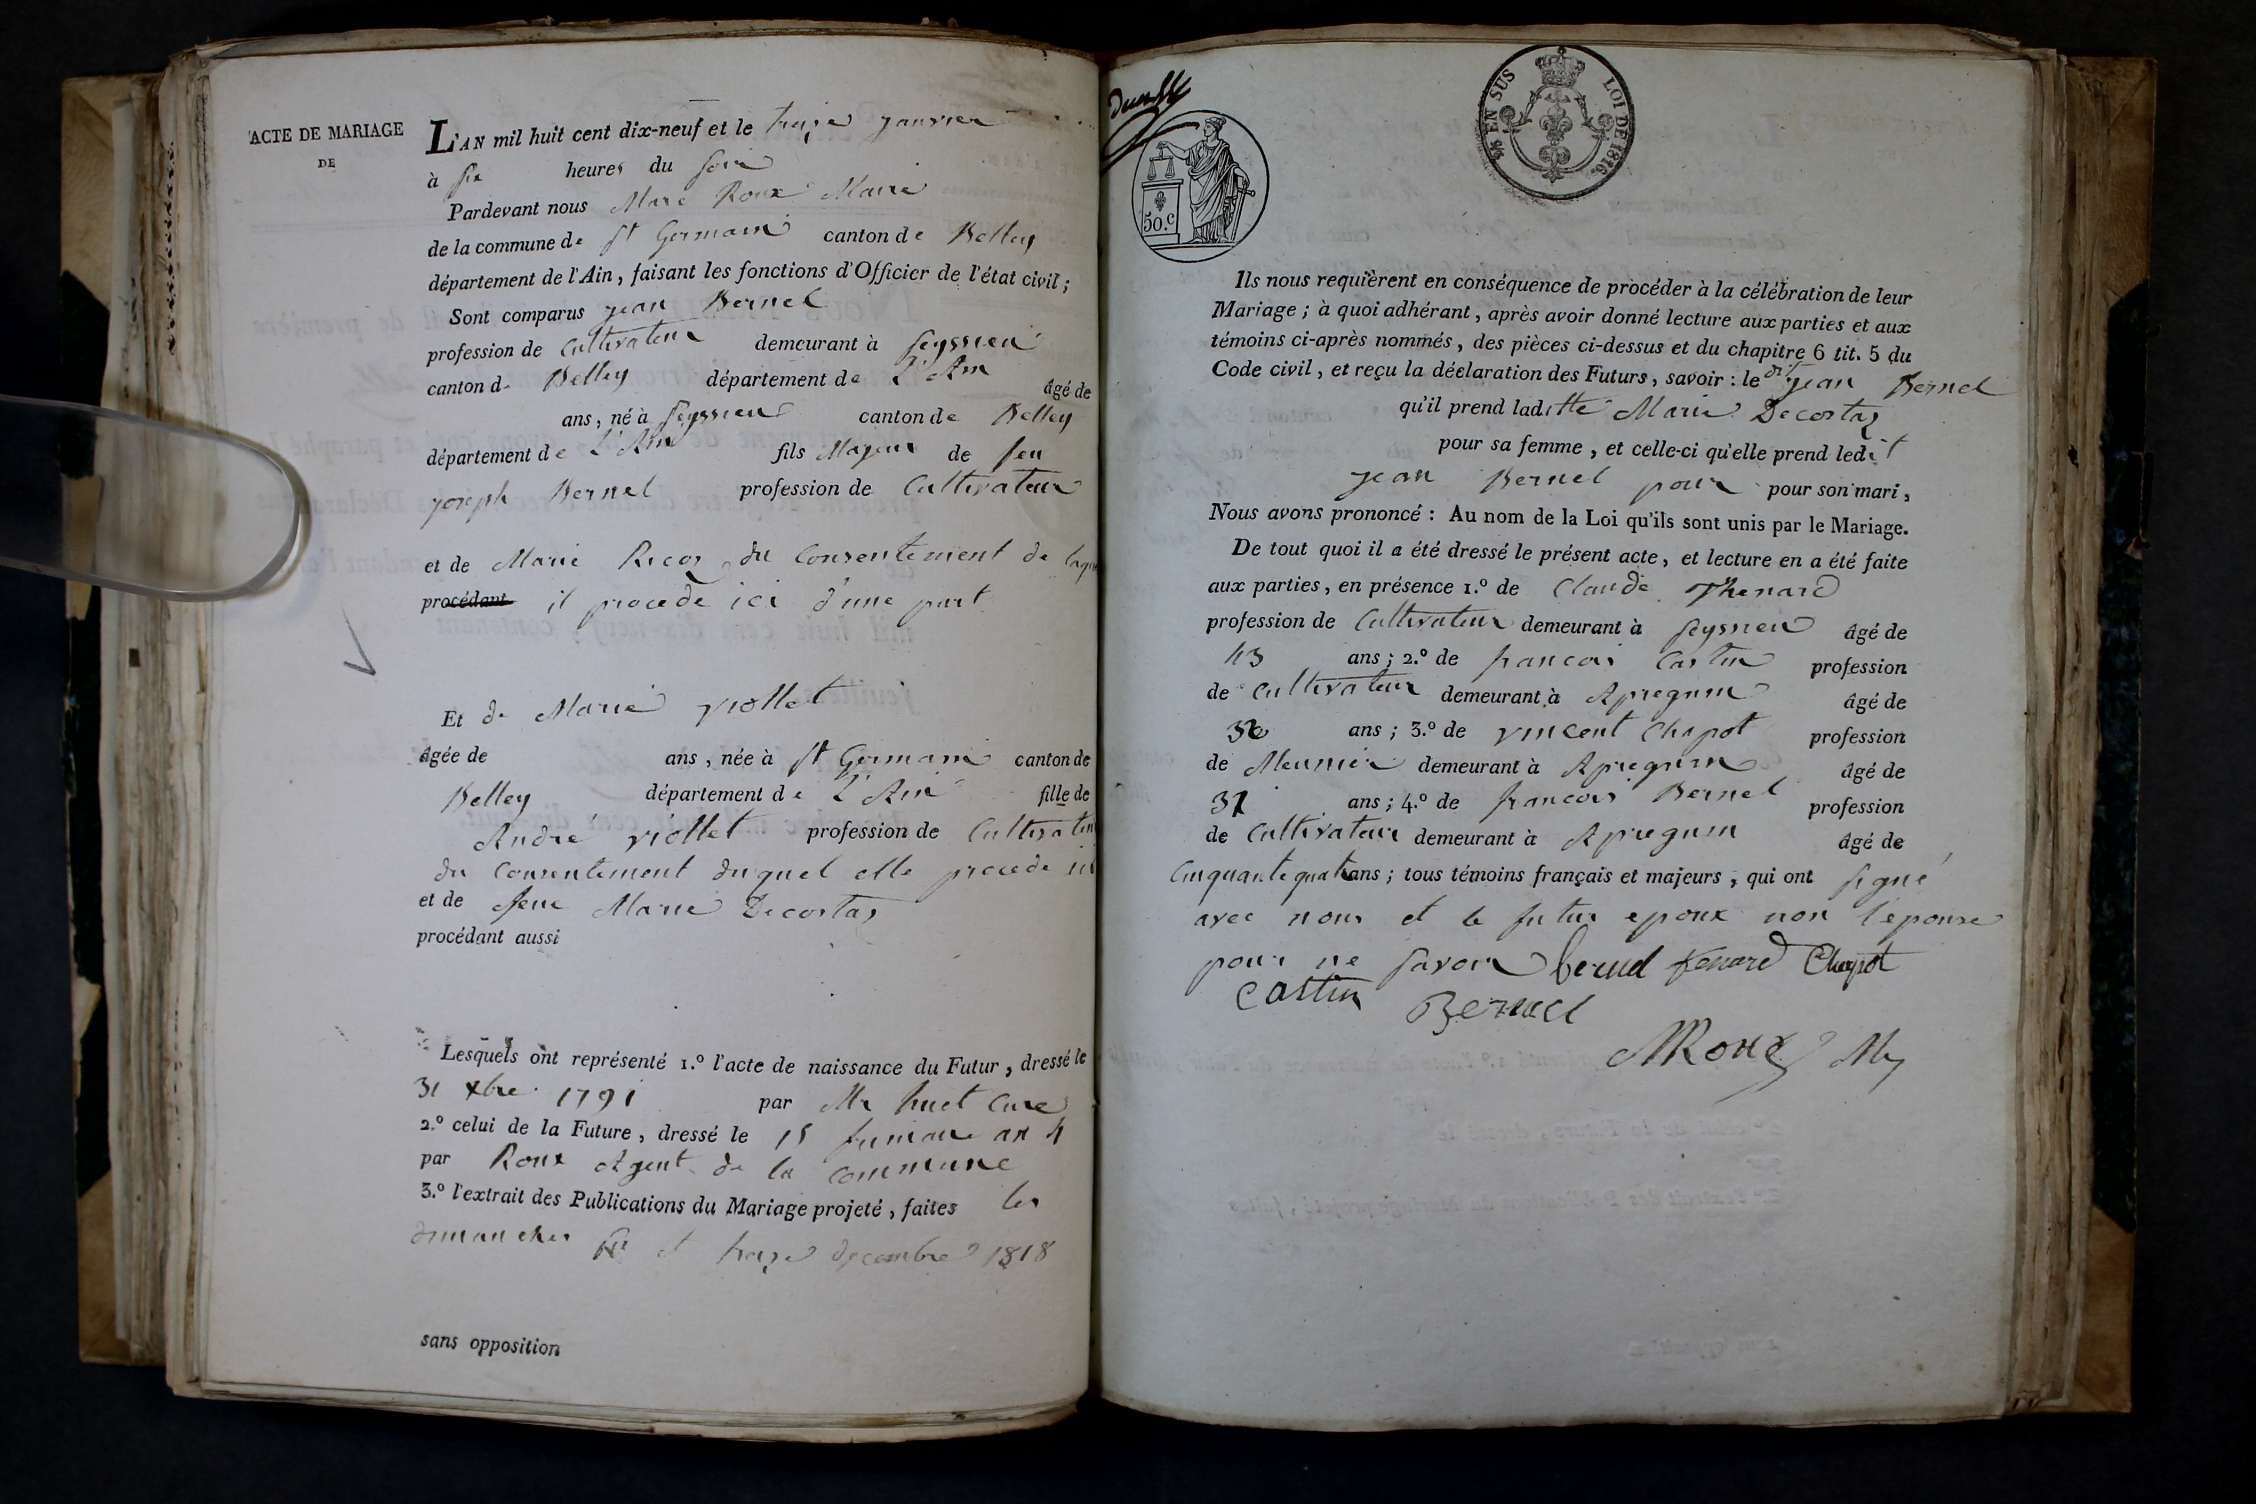 ACTE DE MARIAGE
DE
L'AN mil huit cent dix-neuf et le treize janvier
à six heures du soir
Pardevant nous Marc Roux Maire
de la commune de St Germain canton de Belley
département de l'Ain, faisant les fonctions d'Officier de l'état civil;
Sont comparus jean Bernel
profession de Cultivateur demeurant à Seyssieu
canton de Belley département de L'Ain âgé de
ans, né à Seyssieu canton de Belley
département de L'Ain fils Majeur de feu
joseph Bernel profession de Cultivateur
et de Marie Recos du Consentement de laqu
procédant il procede ici d'une part
Et de Marie viollet
âgée de ans, née à St Germain canton de
Belley département de L'Ain fille de
André viollet profession de Cultivateu
du Consentement duquel elle procede ici
et de feue Marie Decostaz
procédant aussi
Lesquels ont représenté 1.º l'acte de naissance du Futur, dressé le
31 xbre 1791 par Mr huet Curé
2.º celui de la Future, dressé le 15 frimaire an 4
par Roux Agent de la commune
3.º l'extrait des Publications du Mariage projeté, faites les
dimanches et treize decembre 1818
sans opposition
EN SUS LOI DE 1816.
50.c
Ils nous requièrent en conséquence de procéder à la célébration de leur
Mariage; à quoi adhérant, après avoir donné lecture aux parties et aux
témoins ci-après nommés, des pièces ci-dessus et du chapitre 6 tit. 5 du
Code civil, et reçu la déclaration des Futurs, savoir: le dit jean Bernel
qu'il prend laditte Marie Decostaz
pour sa femme, et celle-ci qu'elle prend ledit
jean Bernel pour pour son mari,
Nous avons prononcé: Au nom de la Loi qu'ils sont unis par le Mariage.
De tout quoi il a été dressé le présent acte, et lecture en a été faite
aux parties, en présence 1.º de Claude Thenard
profession de Cultivateur demeurant à Seyssieu âgé de
43 ans; 2.º de francois Castin profession
de Cultivateur demeurant à Apregnin âgé de
36 ans; 3.º de vincent Chapot profession
de Meunier demeurant à Apregnin âgé de
37 ans; 4.º de francois Bernel profession
de Cultivateur demeurant à Apregnin âgé de
Cinquante quatre ans; tous témoins français et majeurs, qui ont signé
avec nous et le futur epoux non l'epouse
pour ne savoir bernel tenard Chapot
Castin Bernel
MRoux